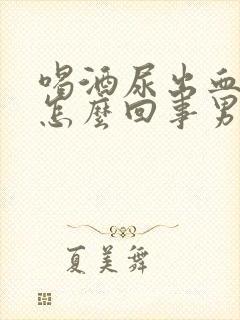 喝酒尿出血
怎麼回事男
夏美舞